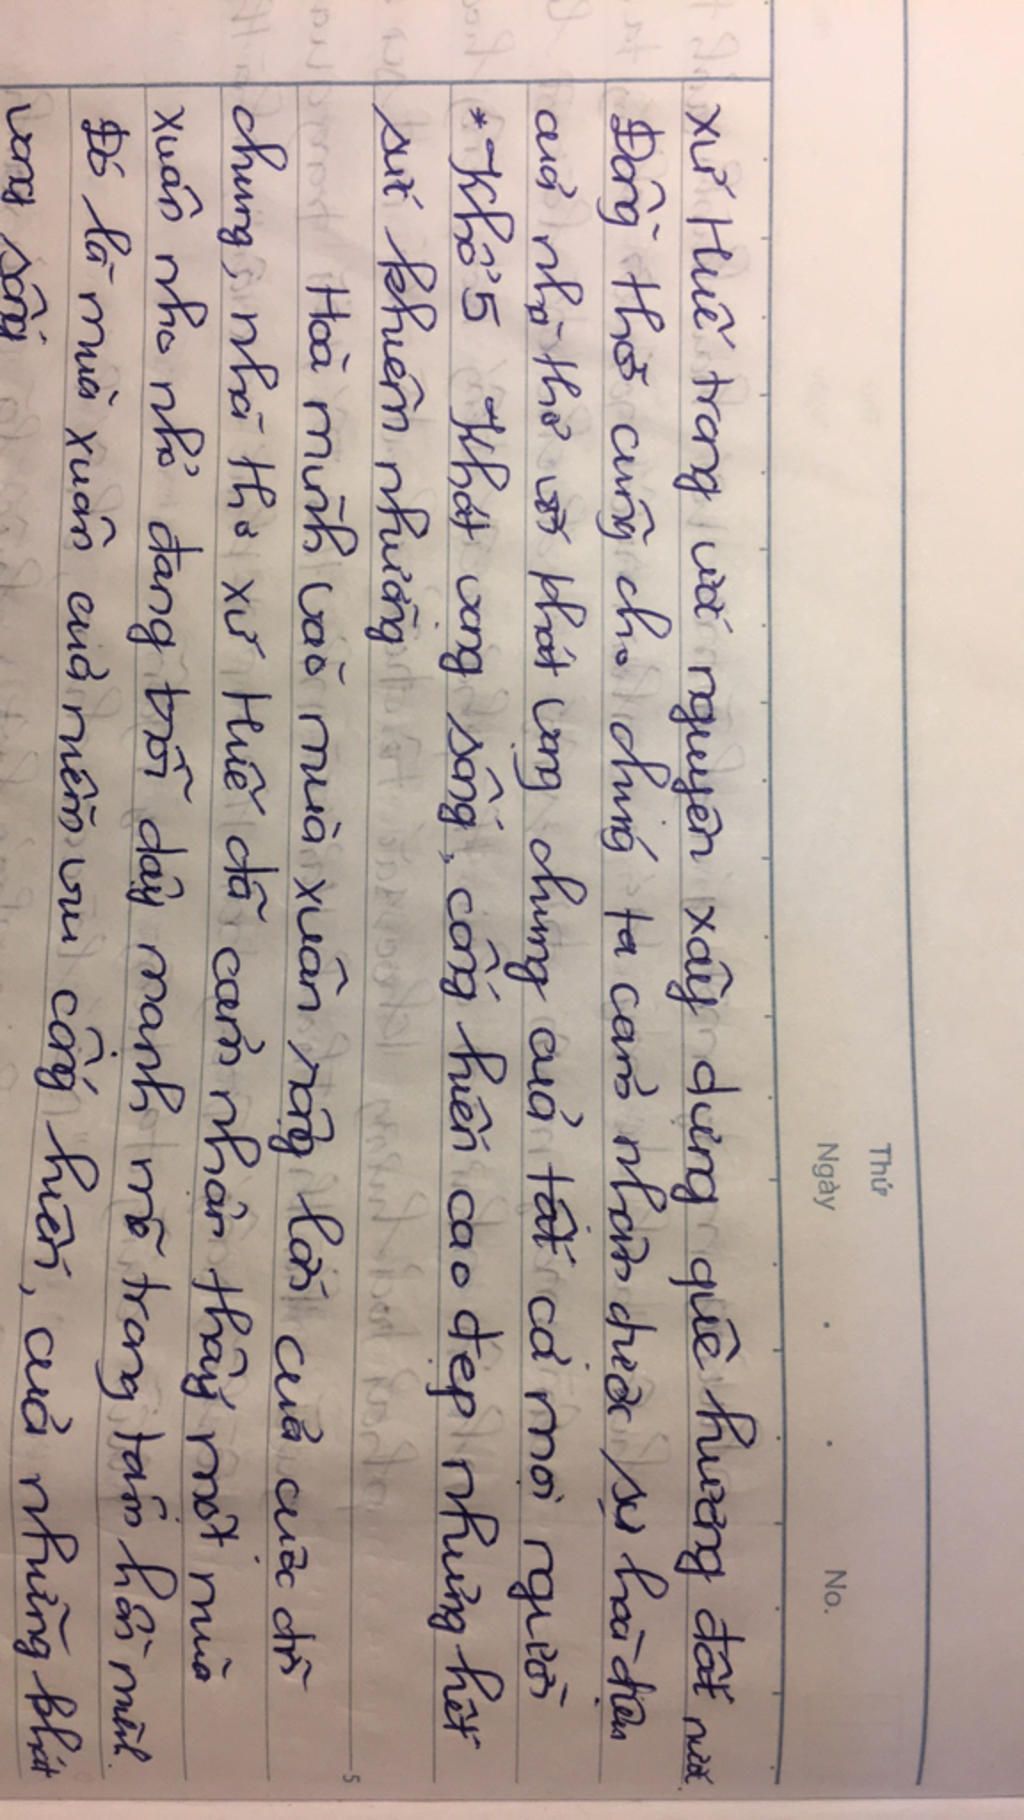 Thứ
Ngày . . No.
xứ Huế trong với nguyện xây dựng quê hương đất nước
Đồng thời cũng cho chúng ta cảm nhận được sự hoà điệu
của nhà thơ với khát vọng chung của tất cả mọi người
*Khổ 5 Khát vọng sống, cống hiến cao đẹp nhưng hết
sức khiêm nhường
Hoà mình vào mùa xuân rộng lớn của cuộc đời
chung, nhà thơ xứ Huế đã cảm nhận thấy một mùa
xuân nho nhỏ đang trỗi dậy mạnh mẽ trong tâm hồn mình.
Đó là mùa xuân của niềm vui cống hiến, của những khát
vọng sống
5